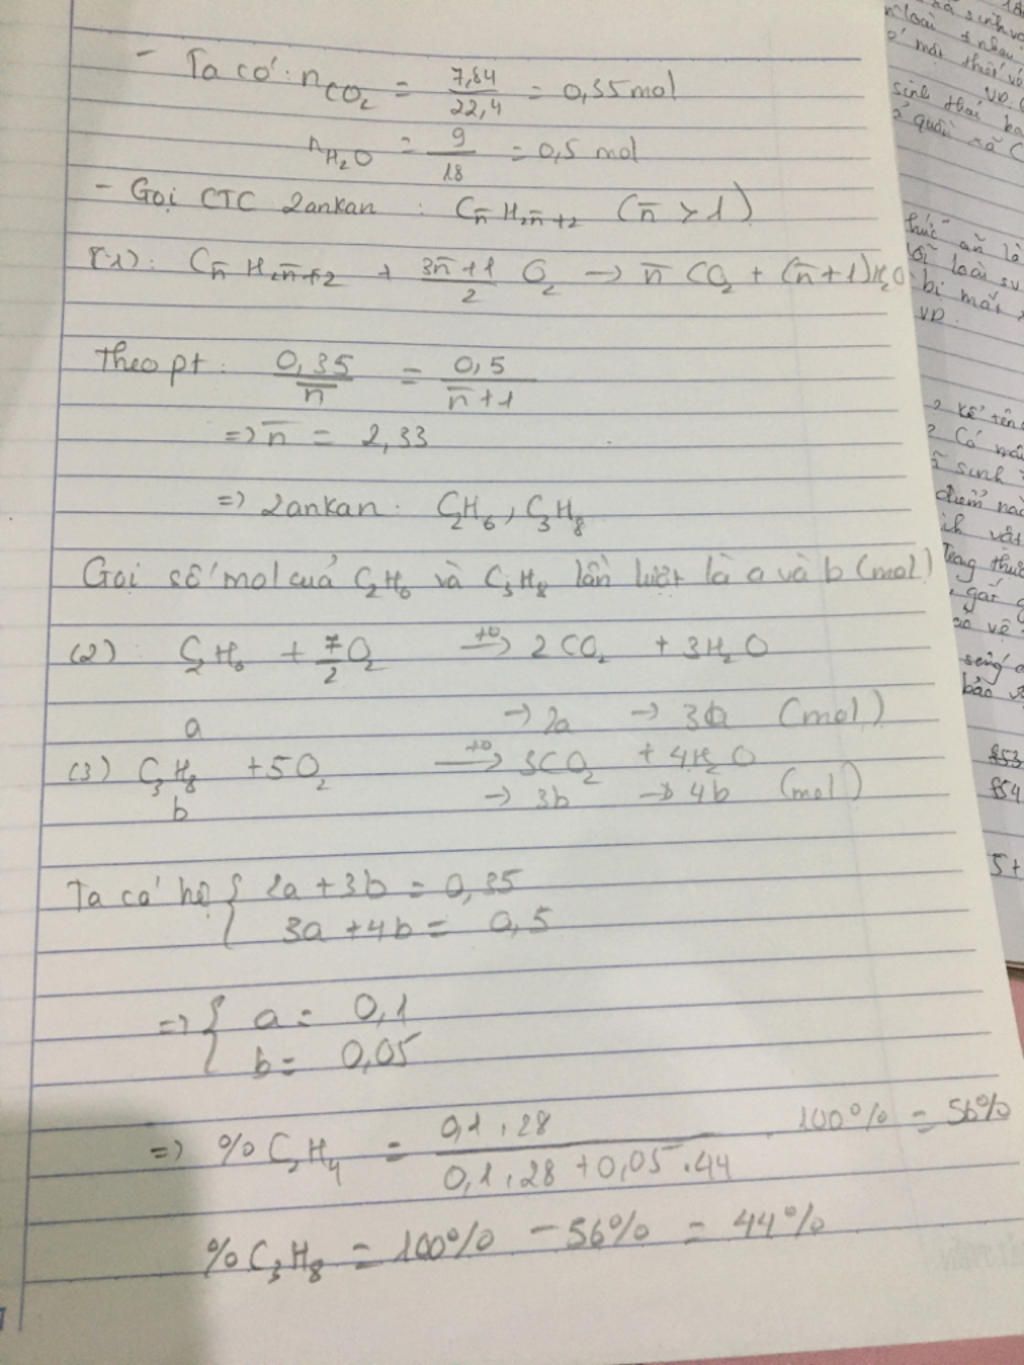 - Ta có: nCO₂ = 7,84/22,4 = 0,35 mol
nH₂O = 9/18 = 0,5 mol
- Gọi CTC 2ankan : Cn̄H₂n̄+₂ (n̄ > 1)
(1): Cn̄H₂n̄+₂ + (3n̄+1)/2 O₂ → n̄ CO₂ + (n̄+1)H₂O
Theo pt: 0,35/n̄ = 0,5/(n̄+1)
=> n̄ = 2,33
=> 2ankan: C₂H₆, C₃H₈
Gọi số mol của C₂H₆ và C₃H₈ lần lượt là a và b (mol)
(2) C₂H₆ + 7/2 O₂ →(t⁰) 2CO₂ + 3H₂O
a → 2a → 3a (mol)
(3) C₃H₈ + 5O₂ →(t⁰) 3CO₂ + 4H₂O
b → 3b → 4b (mol)
Ta có hệ { 2a + 3b = 0,35
3a + 4b = 0,5
=> { a = 0,1
b = 0,05
=> %C₂H₄ = (0,1.28)/(0,1.28 + 0,05.44) 100% = 56%
%C₃H₈ = 100% - 56% = 44%
thức ăn là
VD.
Kể tên
Có mấ
sinh
điểm nà
Trong thức
bảo v
853
854
5+